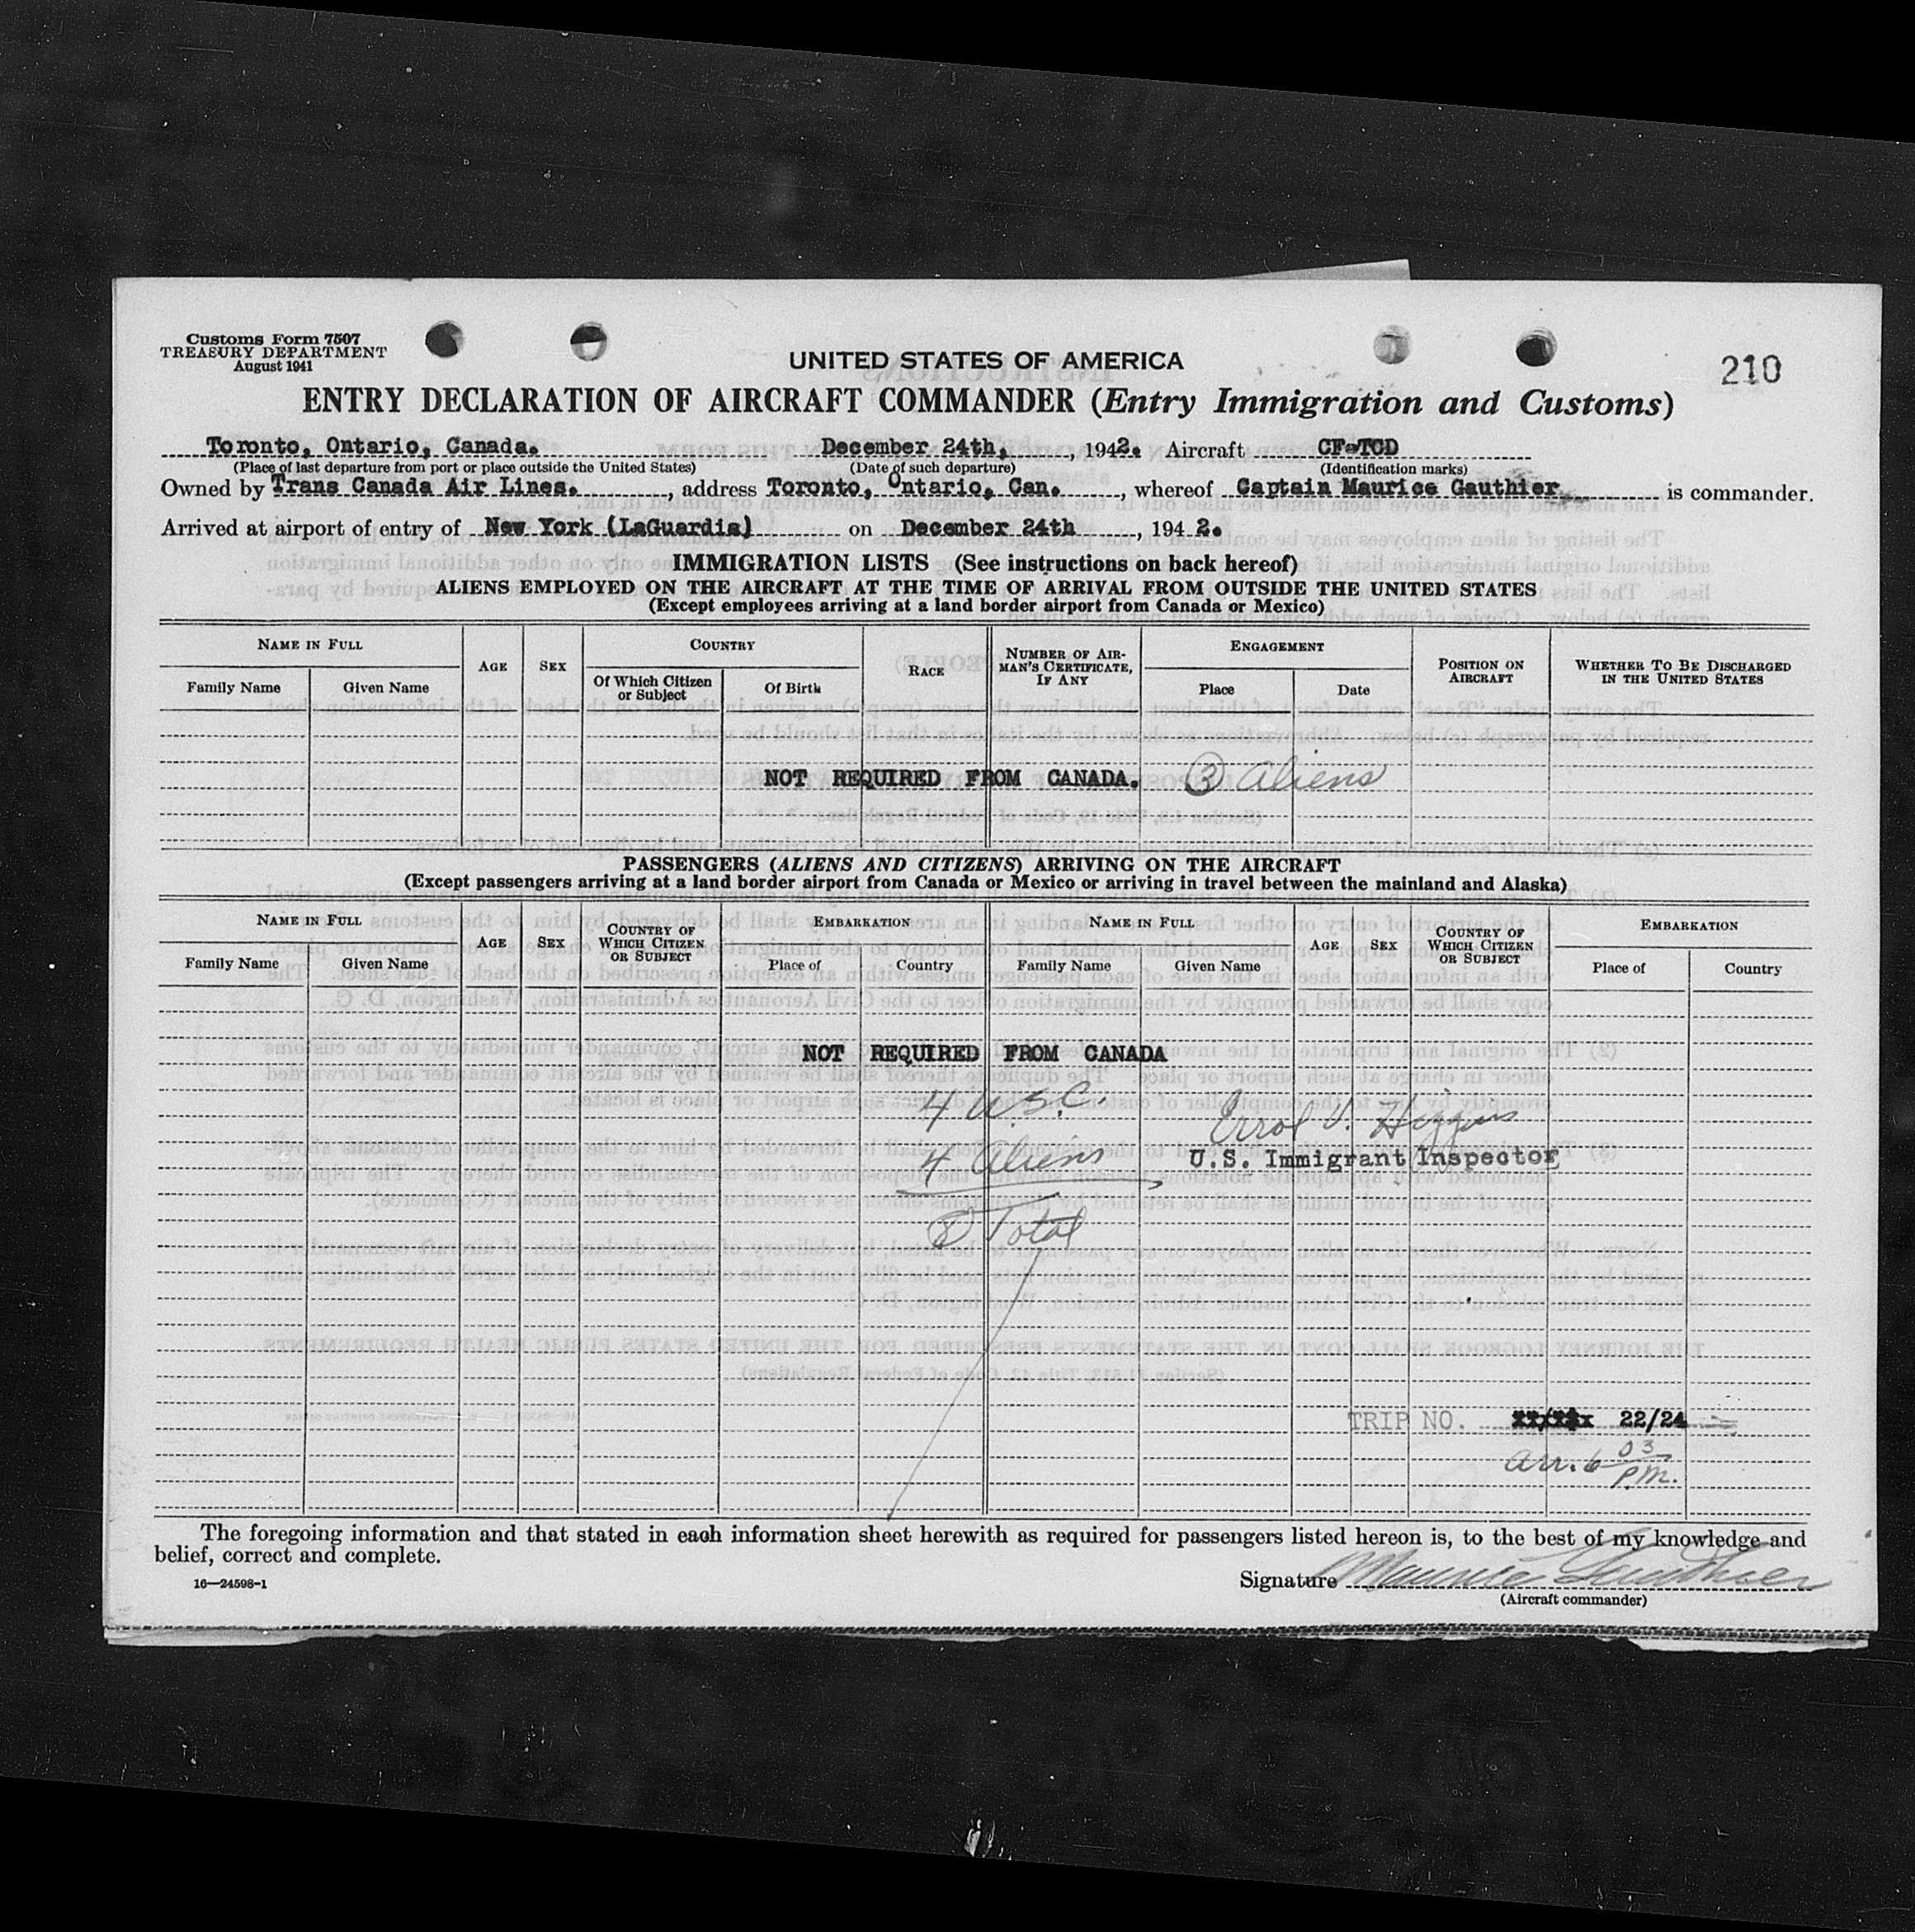 Customs Form 7507
TREASURY DEPARTMENT
August 1941
UNITED STATES OF AMERICA
210
ENTRY DECLARATION OF AIRCRAFT COMMANDER (Entry Immigration and Customs)
Toronto, Ontario, Canada. December 24th, , 1942. Aircraft CF-TCD
(Place of last departure from port or place outside the United States) (Date of such departure) (Identification marks)
Owned by Trans Canada Air Lines. , address Toronto, Ontario, Can. , whereof Captain Maurice Gauthier is commander.
Arrived at airport of entry of New York (LaGuardia) on December 24th , 1942.
IMMIGRATION LISTS (See instructions on back hereof)
ALIENS EMPLOYED ON THE AIRCRAFT AT THE TIME OF ARRIVAL FROM OUTSIDE THE UNITED STATES
(Except employees arriving at a land border airport from Canada or Mexico)
NAME IN FULL AGE SEX COUNTRY RACE NUMBER OF AIRMAN'S CERTIFICATE, IF ANY ENGAGEMENT POSITION ON AIRCRAFT WHETHER TO BE DISCHARGED IN THE UNITED STATES
Family Name Given Name Of Which Citizen or Subject Of Birth Place Date
NOT REQUIRED FROM CANADA. 3 Aliens
PASSENGERS (ALIENS AND CITIZENS) ARRIVING ON THE AIRCRAFT
(Except passengers arriving at a land border airport from Canada or Mexico or arriving in travel between the mainland and Alaska)
NAME IN FULL AGE SEX COUNTRY OF WHICH CITIZEN OR SUBJECT EMBARKATION NAME IN FULL AGE SEX COUNTRY OF WHICH CITIZEN OR SUBJECT EMBARKATION
Family Name Given Name Place of Country Family Name Given Name Place of Country
NOT REQUIRED FROM CANADA
4 U.S.C.
Errol V. Higgins
4 Aliens
U.S. Immigrant Inspector
8 Total
TRIP NO. 22/24
Arr. 6 03 P.M.
The foregoing information and that stated in each information sheet herewith as required for passengers listed hereon is, to the best of my knowledge and
belief, correct and complete.
16—24598-1
Signature Maurice Gauthier
(Aircraft commander)